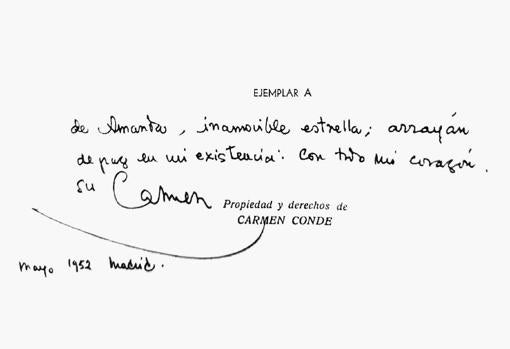 EJEMPLAR A
de Amanda, inamovible estrella; arrayán
de paz en mi existencia. Con todo mi corazón.
Su Carmen
Propiedad y derechos de
CARMEN CONDE
Mayo 1952 Madrid.